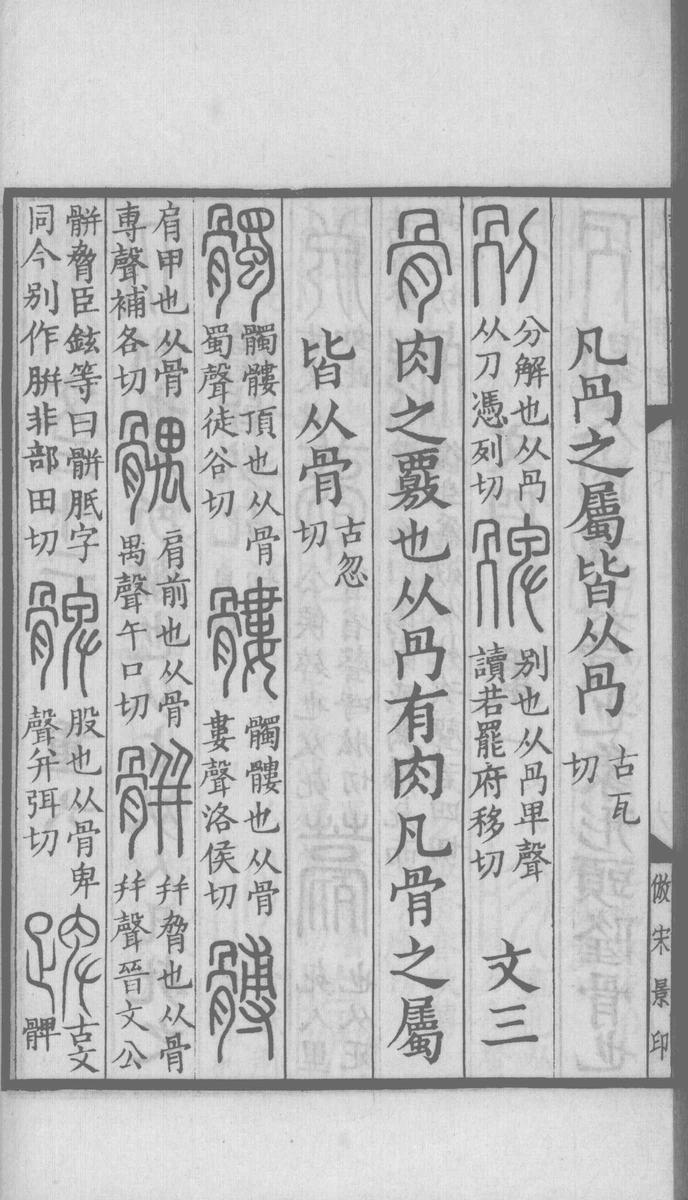 凡冎之屬皆从冎古瓦切
𠛰分解也从冎从刀憑列切𩨨別也从冎卑聲讀若罷府移切文三
骨肉之覈也从冎有肉凡骨之屬
皆从骨古忽切
髑髑髏頂也从骨蜀聲徒谷切髏髑髏也从骨婁聲洛侯切髆
肩甲也从骨尃聲補各切髃肩前也从骨禺聲午口切骿并脅也从骨并聲晉文公
骿脅臣鉉等曰骿胝字同今別作胼非部田切髀股也从骨卑聲并弭切𨂙古文髀
倣宋景印